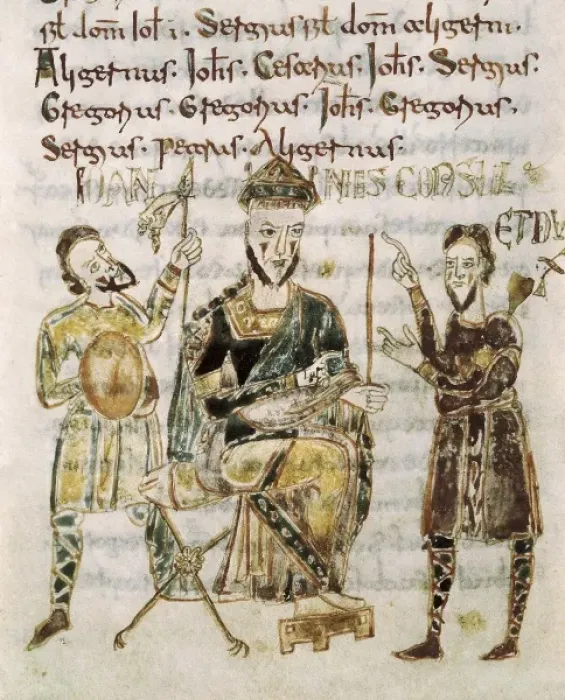 sƺt dom̄ Ioħi · Sergius sƺt dom̄ aligerni ·
Aligernus · Ioħs · Cesarius · Ioħs · Sergius ·
Gregorius · Gregorius · Ioħs · Gregorius ·
Sergius · petrus · Aligernus ·
IOAN NIIS CONSUL
ET DU